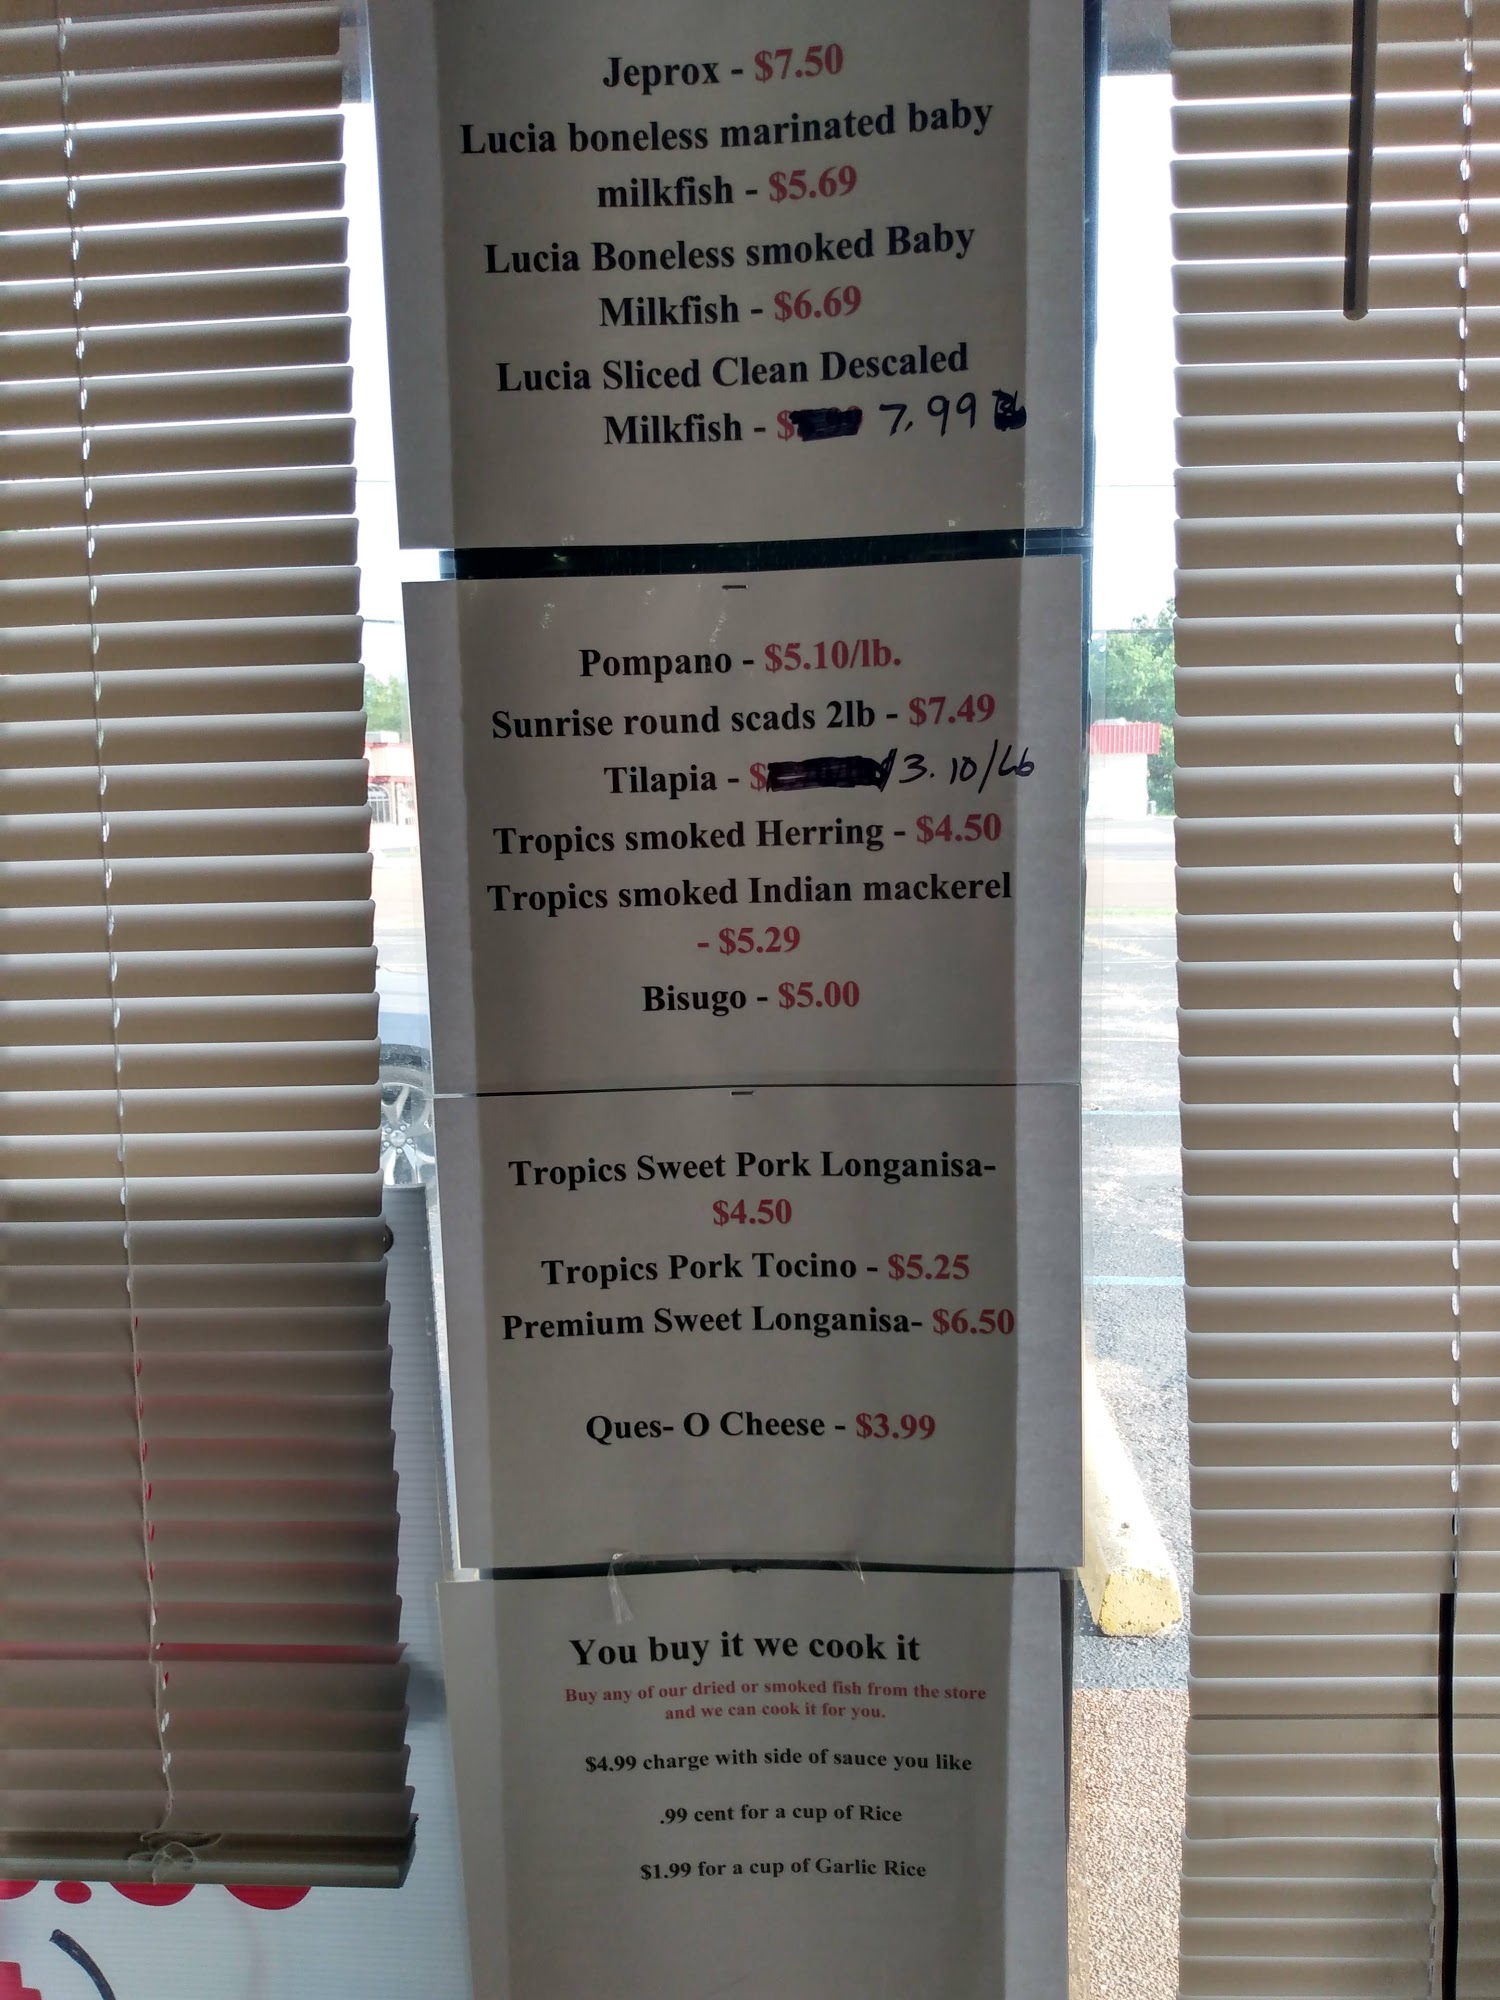 Jeprox - $7.50
Lucia boneless marinated baby
milkfish - $5.69
Lucia Boneless smoked Baby
Milkfish - $6.69
Lucia Sliced Clean Descaled
Milkfish - $ 7.99
Pompano - $5.10/lb.
Sunrise round scads 2lb - $7.49
Tilapia - $ $3.10/Lb
Tropics smoked Herring - $4.50
Tropics smoked Indian mackerel
- $5.29
Bisugo - $5.00
Tropics Sweet Pork Longanisa-
$4.50
Tropics Pork Tocino - $5.25
Premium Sweet Longanisa- $6.50
Ques- O Cheese - $3.99
You buy it we cook it
Buy any of our dried or smoked fish from the store
and we can cook it for you.
$4.99 charge with side of sauce you like
.99 cent for a cup of Rice
$1.99 for a cup of Garlic Rice